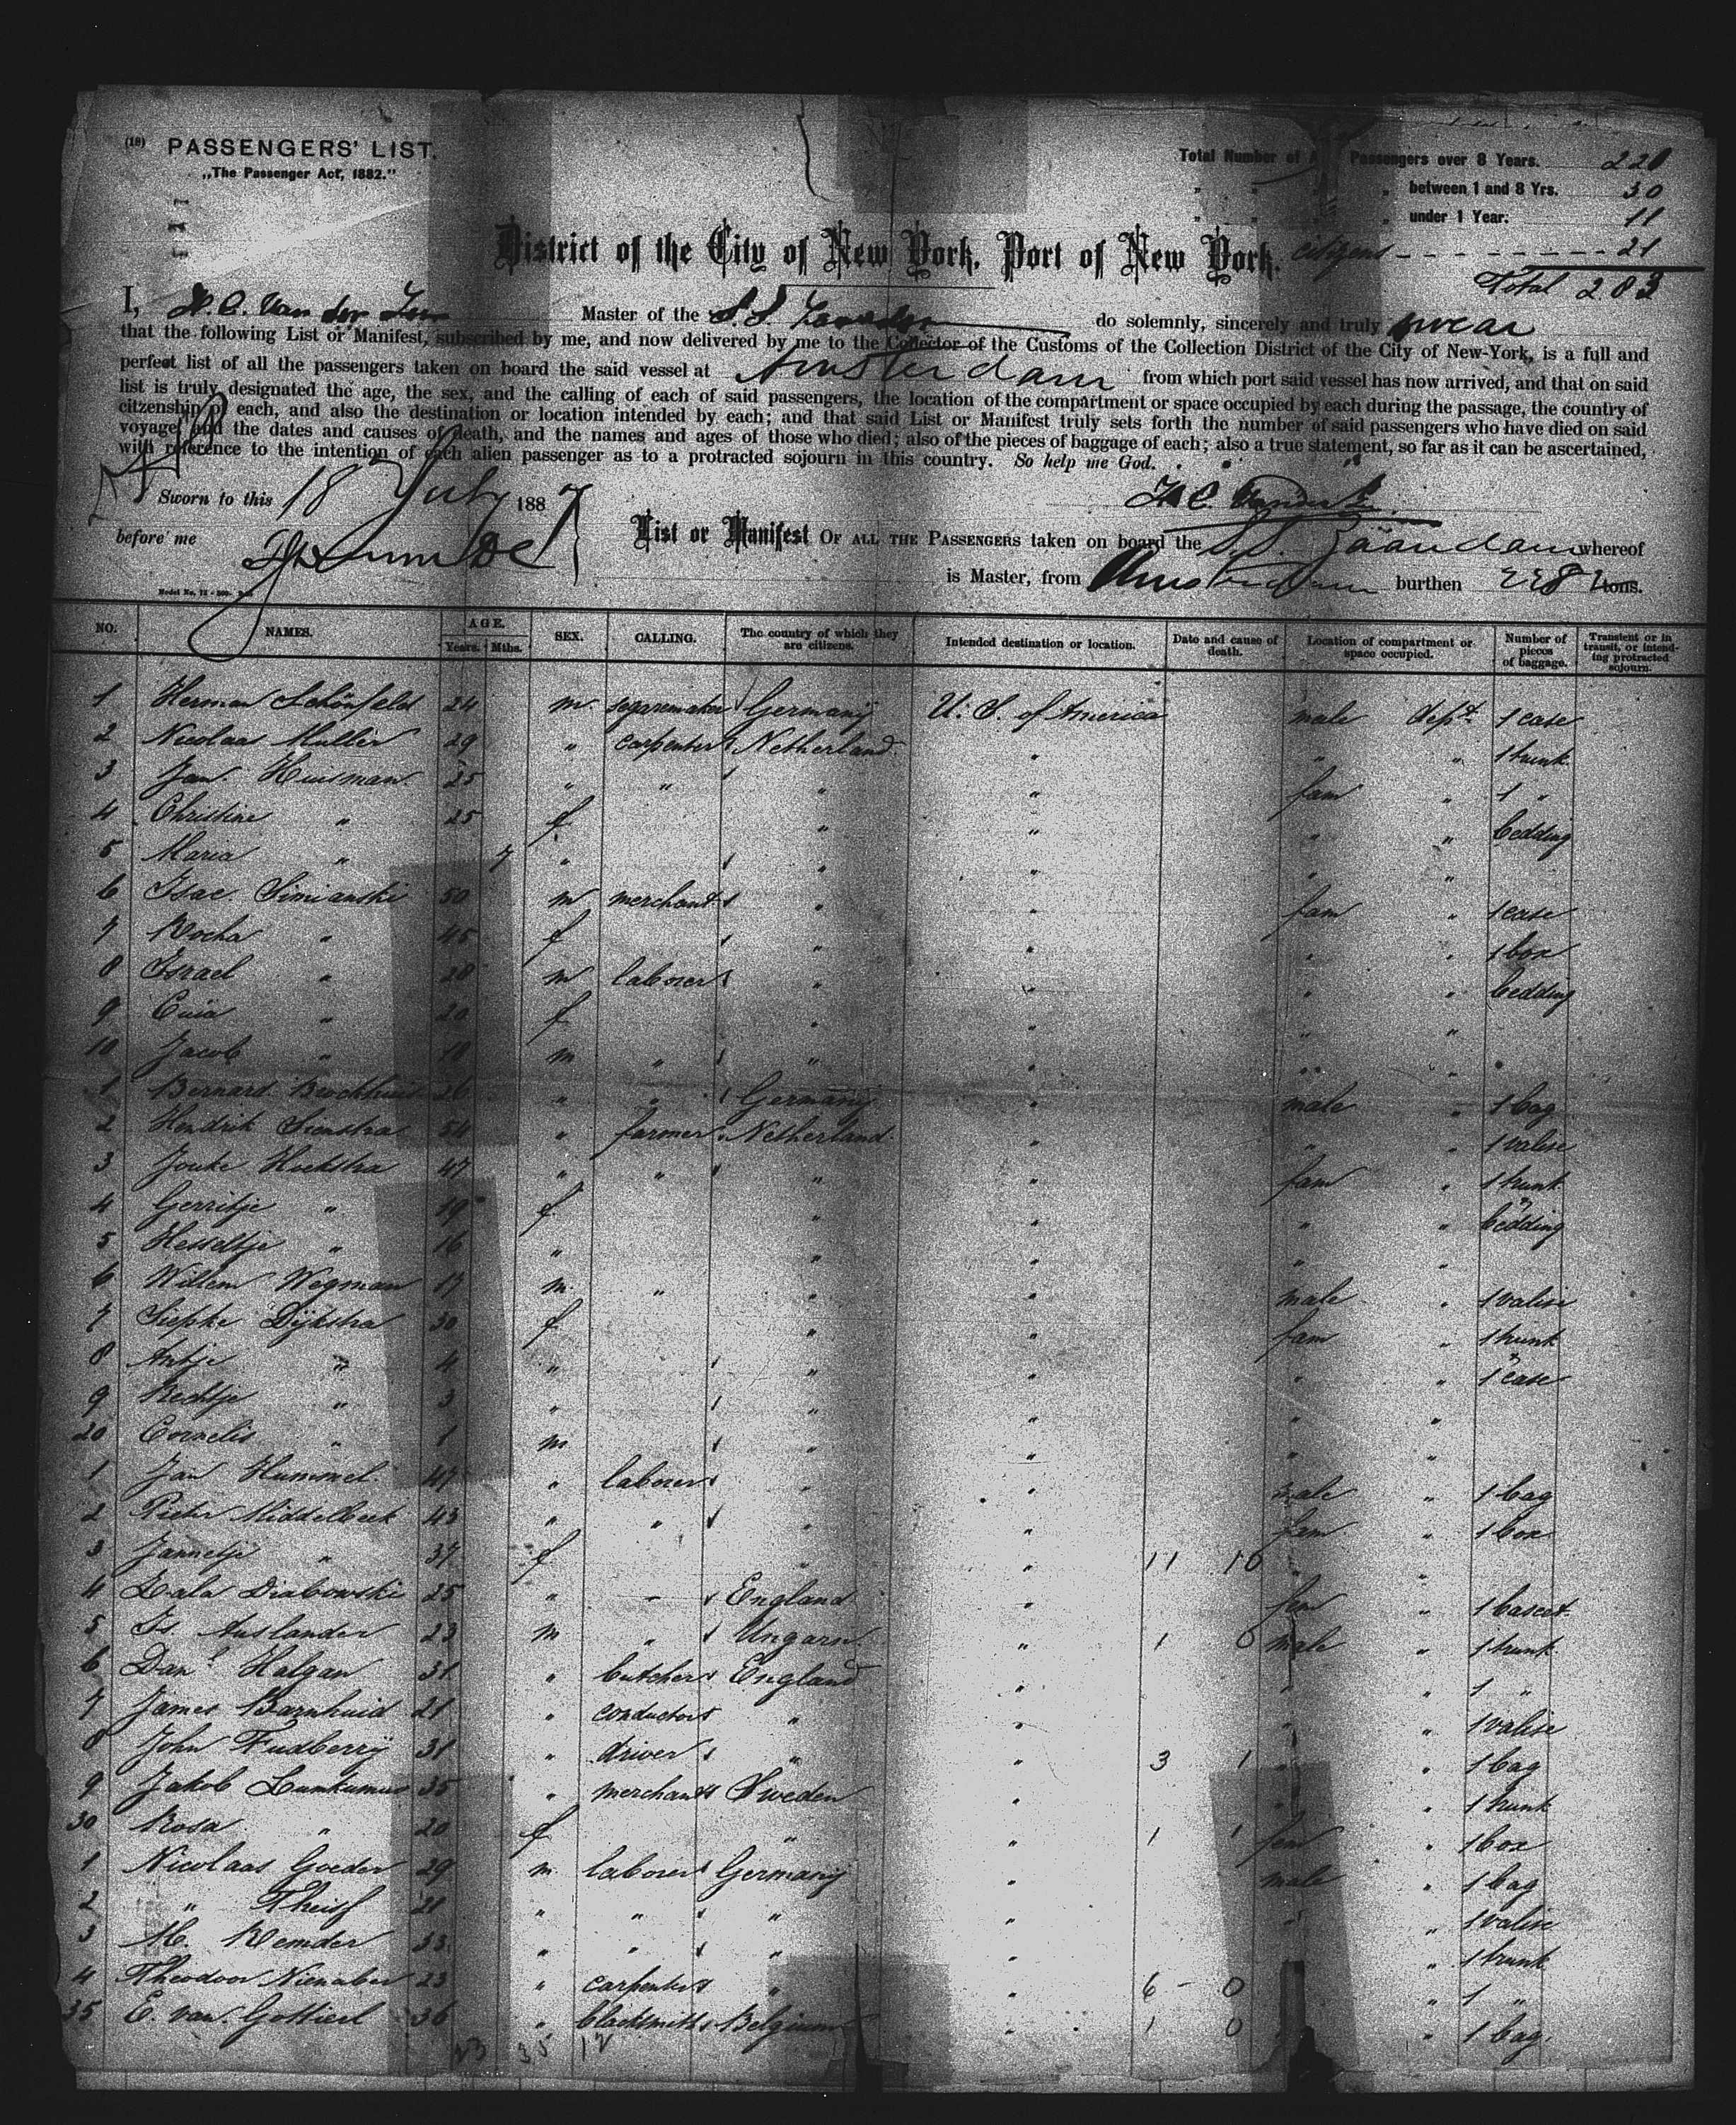 (18) PASSENGERS' LIST.
„The Passenger Act, 1882."
Total Number of Passengers over 8 Years. 220
" " " between 1 and 8 Yrs. 30
" " " under 1 Year. 11
citizens 21
Total 283
District of the City of New York, Port of New York.
I, H. C. Van der Zee Master of the S.S. Zaandam do solemnly, sincerely and truly swear
that the following List or Manifest, subscribed by me, and now delivered by me to the Collector of the Customs of the Collection District of the City of New-York, is a full and
perfect list of all the passengers taken on board the said vessel at Amsterdam from which port said vessel has now arrived, and that on said
list is truly designated the age, the sex, and the calling of each of said passengers, the location of the compartment or space occupied by each during the passage, the country of
citzenship of each, and also the destination or location intended by each; and that said List or Manifest truly sets forth the number of said passengers who have died on said
voyage, and the dates and causes of death, and the names and ages of those who died; also of the pieces of baggage of each; also a true statement, so far as it can be ascertained,
with reference to the intention of each alien passenger as to a protracted sojourn in this country. So help me God.
Sworn to this 18 July 1887
before me
H. C.
List or Manifest OF ALL THE PASSENGERS taken on board the S.S. Zaandam whereof
is Master, from Amsterdam burthen tons.
NO. NAMES. AGE. Years. Mths. SEX. CALLING. The country of which they are citizens. Intended destination or location. Date and cause of death. Location of compartment or space occupied. Number of pieces of baggage. Transient or in transit, or intending protracted sojourn.
1 Herman Schönfeld 24 m segaremaker Germanÿ U. S. of America male dept. 1 case
2 Nicolaas Muller 29 " carpenter Netherland " " " 1 trunk
3 Jan Huisman 25 " " " " fam " 1 "
4 Christine " 25 f " " " " bedding
5 Maria " 7 " " " " "
6 Isac Simianski 50 m merchant " " fam " 1 case
7 Rocha " 45 f " " " " 1 box
8 Israel " 20 m laborer " " " " bedding
9 " 20 f " " " "
10 Jacob " 18 m " " " " "
1 Bernard Brockhuis 26 " " Germanÿ " male " 1 bag
2 Hendrik Sienstra 54 " farmer Netherland " " " 1 valise
3 Jouke Hoekstra 47 " " " " fam " 1 trunk
4 Gerritje " 19 f " " " " bedding
5 Hesseltje " 16 " " " " "
6 Willem Wegman 17 m " " " male " 1 valise
7 Siepke Dÿkstra 30 f " " fam " 1 trunk
8 Antje " 4 " " " " " 1 case
9 Rechtje " 3 " " " " "
20 Cornelis " 1 m " " " "
1 Jan Hummel 47 " laborer " " male " 1 bag
2 Pieter Middelbeek 43 " " " " fam " 1 box
3 Jannetje " 37 f " " 11 10 " "
4 Lala Drabowski 25 " " England " fem " 1 bascet
5 Is Auslander 23 m " Ungarn " 1 0 male " 1 trunk
6 Danl Halgan 31 " butcher England " " " 1 "
7 James Barnhuid 21 " conductor " " " " 1 valise
8 John Fudberrÿ 31 " driver " " 3 1 " " 1 bag
9 Jakob Lunkumus 35 " merchant Sweden " " " 1 trunk
30 Rosa " 20 f " " 1 1 fem " 1 box
1 Nicolaas Goeder 29 m laborer Germanÿ " male " 1 bag
2 " Theis 21 " " " " " " 1 valise
3 M. Remder 33 " " " " " 1 trunk
4 Theodoor Nienaber 23 " carpenter " " 6 - 0 " 1 "
35 E. van Gottierl 36 " blacksmith Belgium " 1 0 " 1 bag.
23 35 12